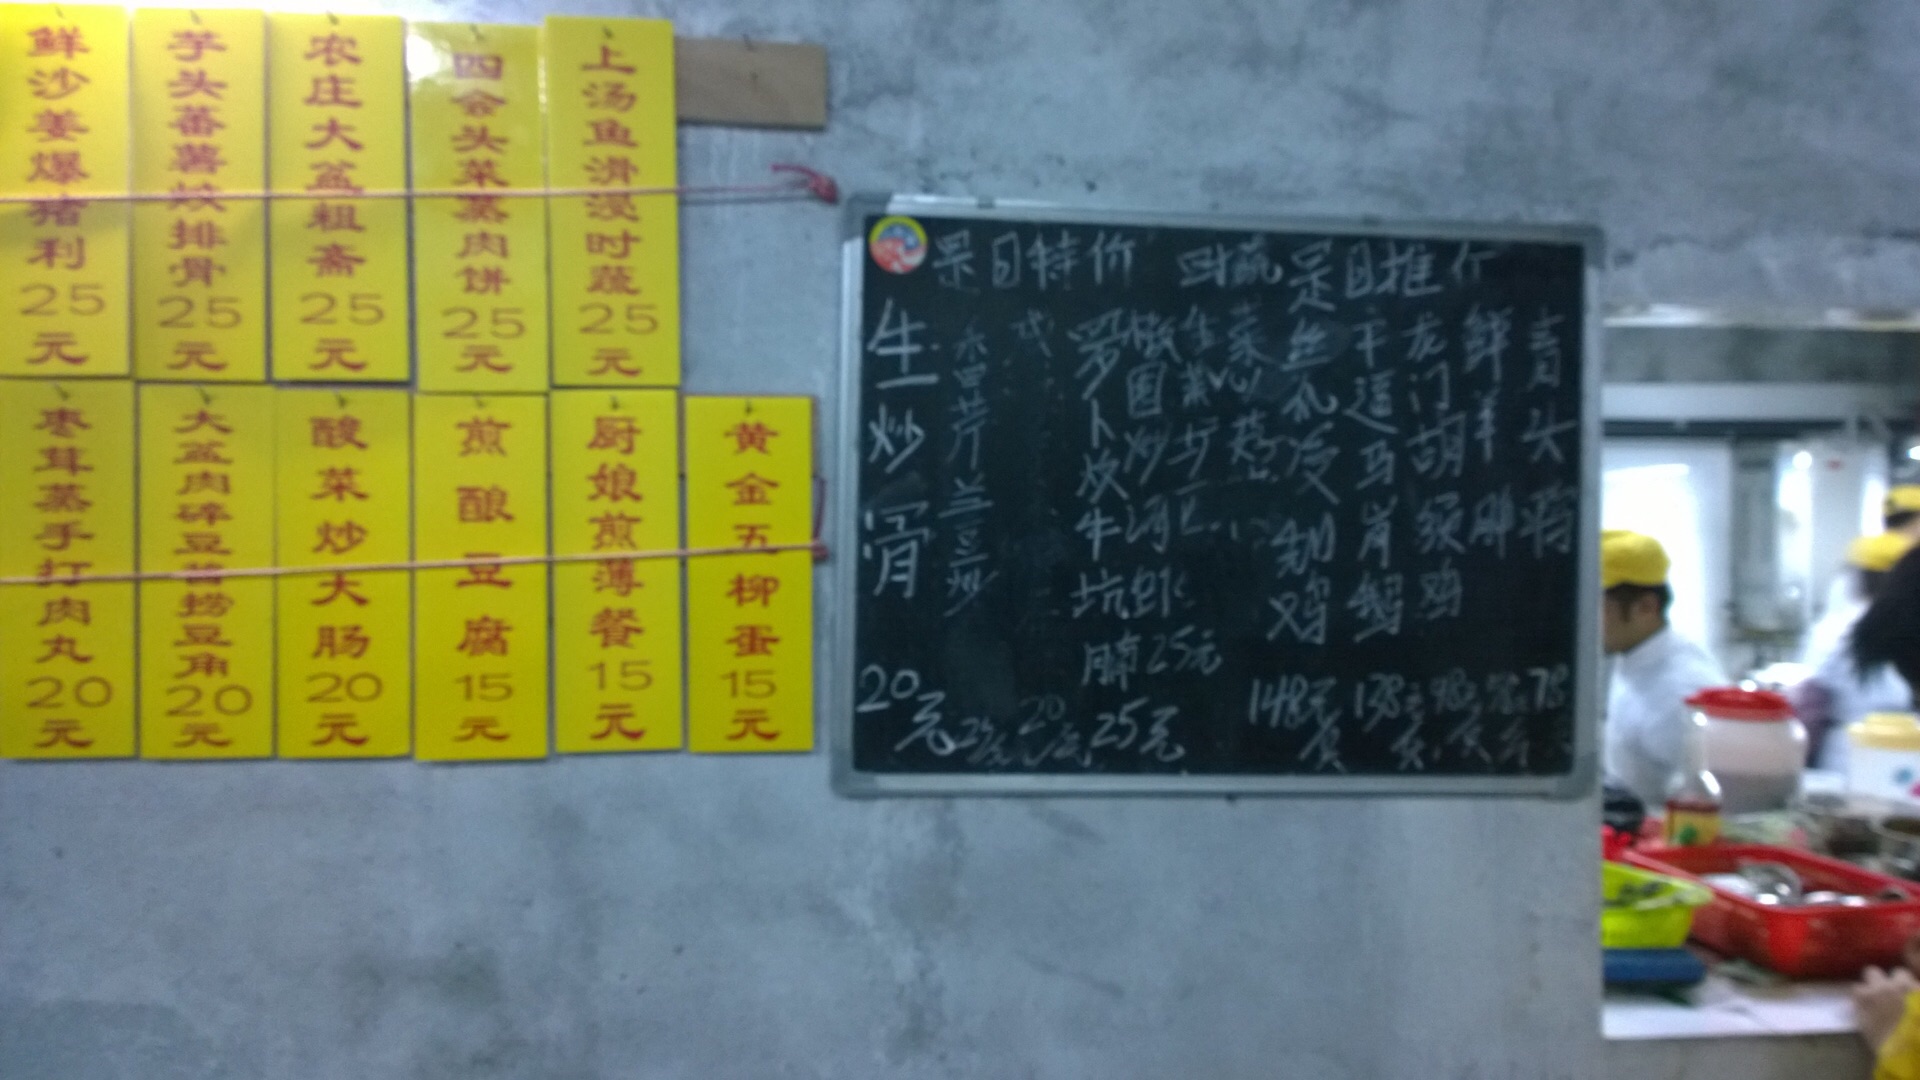 鲜沙姜爆猪利25元
芋头蕃薯炆排骨25元
农庄大盆粗斋25元
四会头菜蒸肉饼25元
上汤鱼滑浸时蔬25元
枣茸蒸手打肉丸20元
大盆肉碎豆酱捞豆角20元
酸菜炒大肠20元
煎酿豆腐15元
厨娘煎薄餐15元
黄金五柳蛋15元
是日特价
时蔬
是日推介
生炒骨20元
西芹兰豆炒
20
罗卜炆牛坑腩25元
炒河虾25元
生菜
菜心
丝瓜
鸡148元
干逼马岗鹅138元
龙门胡须鸡98
鲜羊
青头鸭78